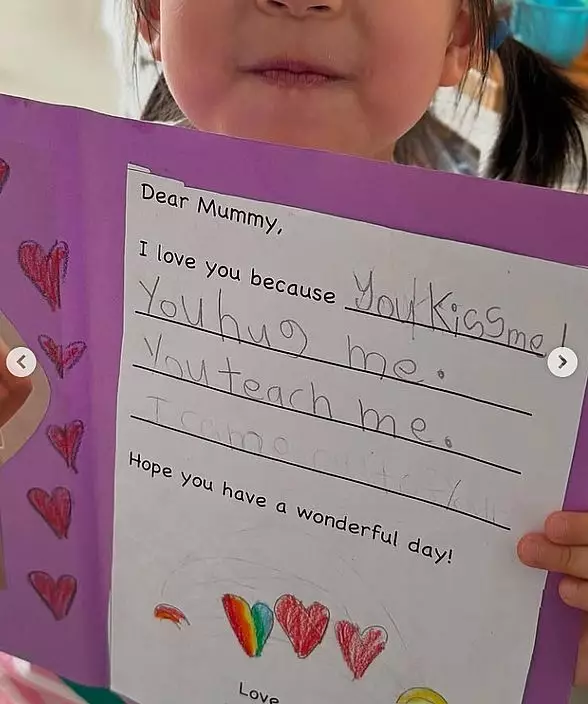 Dear Mummy,
I love you because You Kiss me!
You hug me.
You teach me.
I
Hope you have a wonderful day!
Love